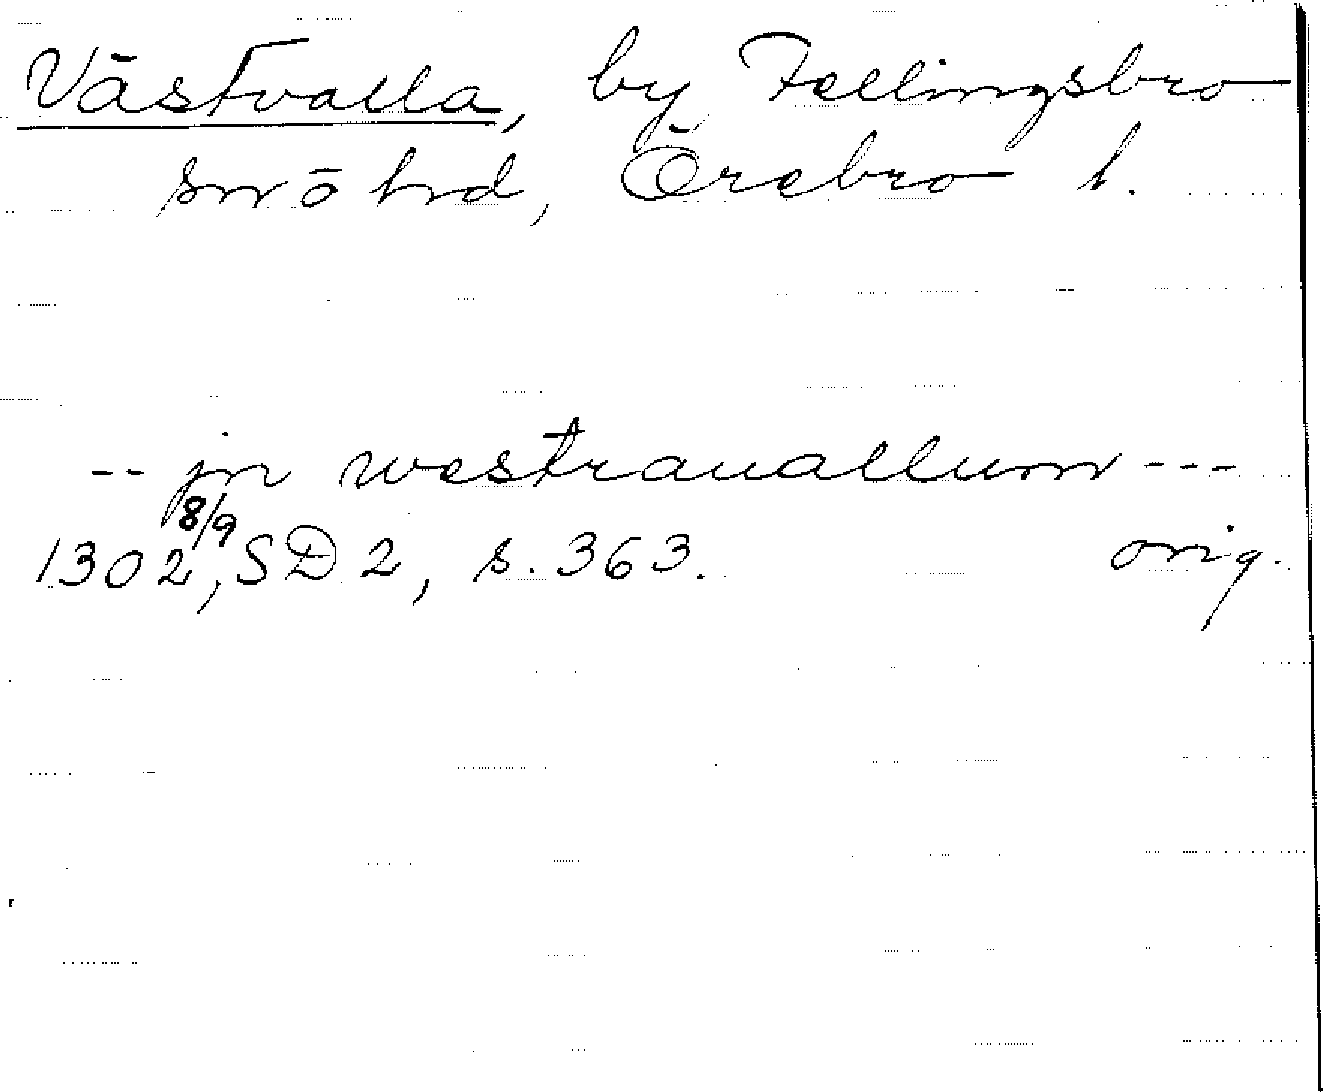 Västvalla, by Fellingsbro
sn o hd, Örebro l.
-- jn westrauallum ---
1302 8/9, SD 2, s. 363. orig.